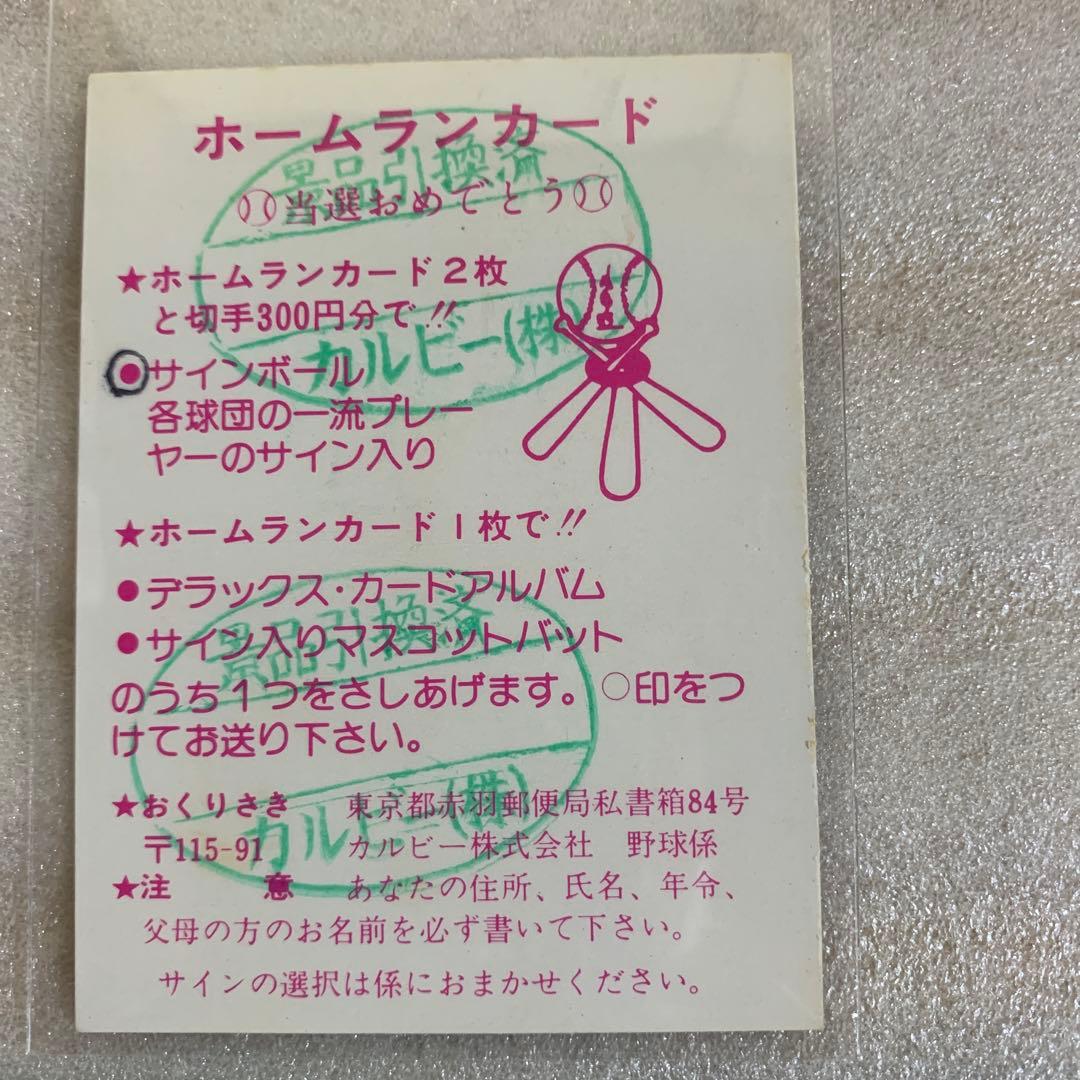 ホームランカード
景品引換済
当選おめでとう
★ホームランカード2枚
と切手300円分で!!
カルビー(株)
●サインボール
各球団の一流プレー
ヤーのサイン入り
★ホームランカード1枚で!!
●デラックス・カードアルバム
景品引換済
●サイン入りマスコットバット
のうち1つをさしあげます。○印をつ
けてお送り下さい。
★おくりさき 東京都赤羽郵便局私書箱84号
カルビー(株)
〒115-91 カルビー株式会社 野球係
★注意 あなたの住所、氏名、年令、
父母の方のお名前を必ず書いて下さい。
サインの選択は係におまかせください。